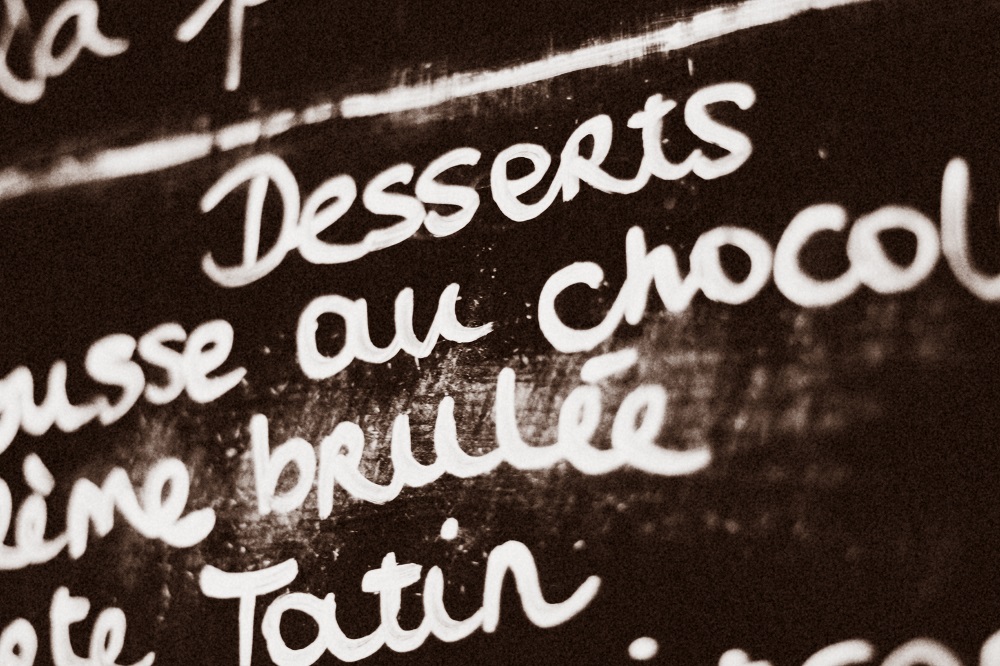 la
Desserts
ousse au chocol
ème brulée
ete Tatin